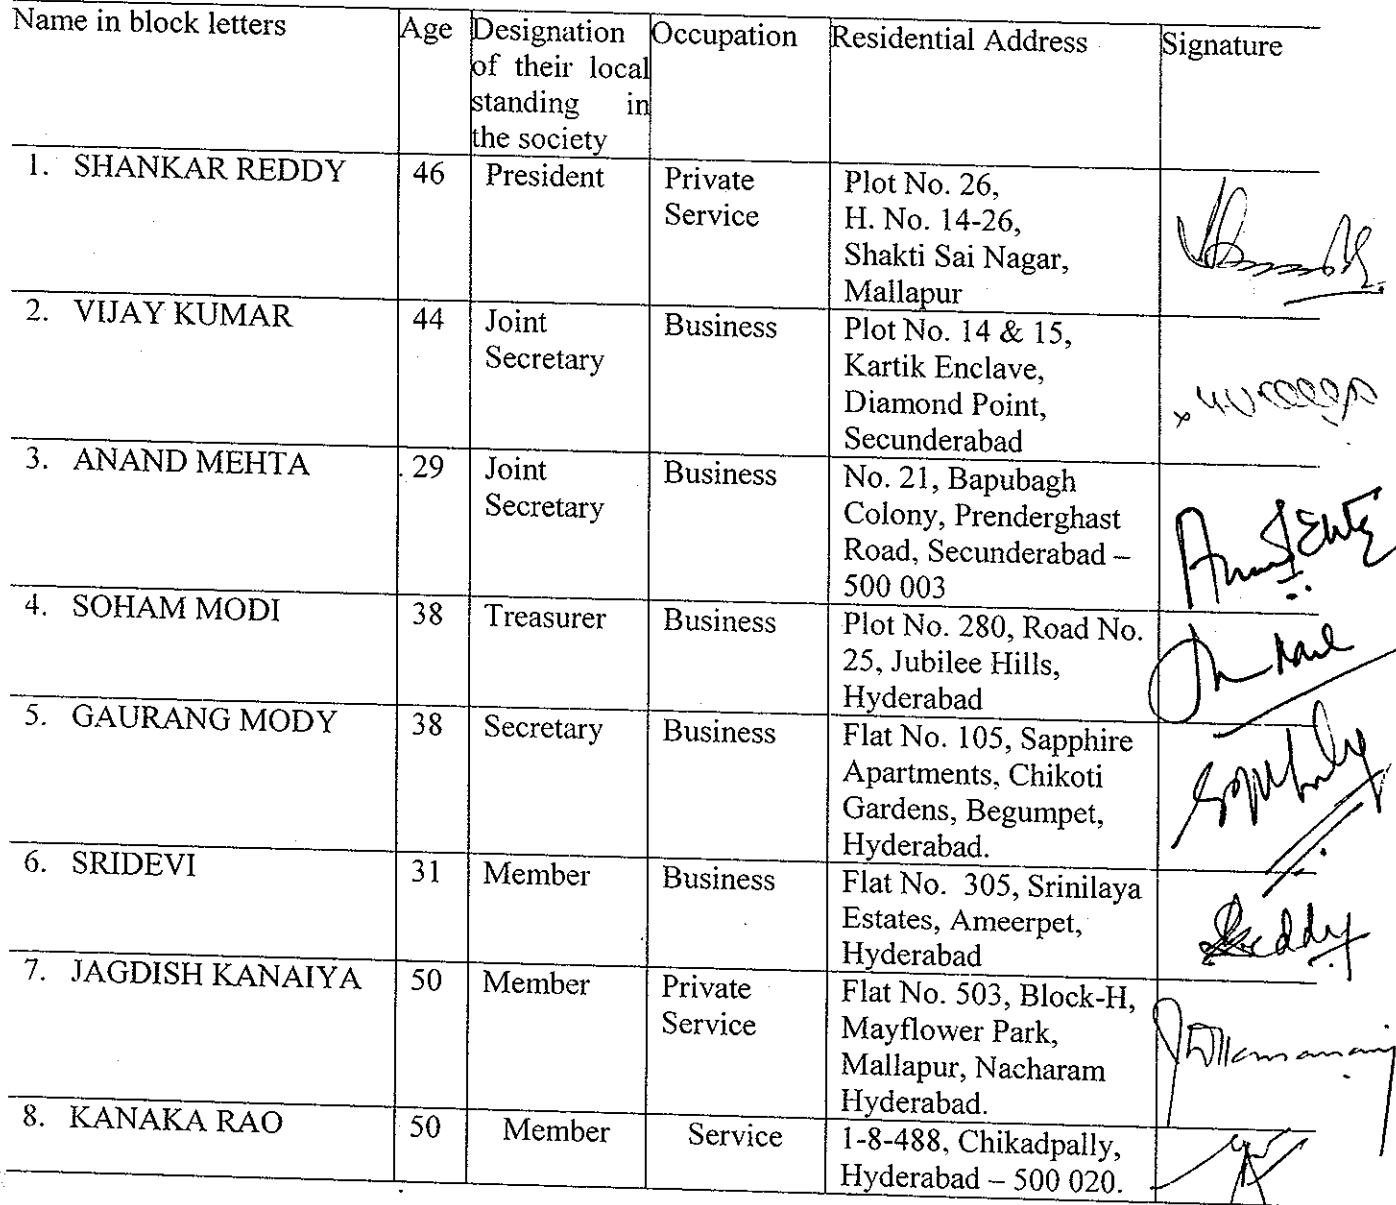 Name in block letters Age Designation Occupation Residential Address Signature
of their local
standing in
the society
1. SHANKAR REDDY 46 President Private Plot No. 26,
Service H. No. 14-26,
Shakti Sai Nagar,
Mallapur
2. VIJAY KUMAR 44 Joint Business Plot No. 14 & 15,
Secretary Kartik Enclave,
Diamond Point,
Secunderabad
3. ANAND MEHTA 29 Joint Business No. 21, Bapubagh
Secretary Colony, Prenderghast
Road, Secunderabad –
500 003
4. SOHAM MODI 38 Treasurer Business Plot No. 280, Road No.
25, Jubilee Hills,
Hyderabad
5. GAURANG MODY 38 Secretary Business Flat No. 105, Sapphire
Apartments, Chikoti
Gardens, Begumpet,
Hyderabad.
6. SRIDEVI 31 Member Business Flat No. 305, Srinilaya
Estates, Ameerpet,
Hyderabad
7. JAGDISH KANAIYA 50 Member Private Flat No. 503, Block-H,
Service Mayflower Park,
Mallapur, Nacharam
Hyderabad.
8. KANAKA RAO 50 Member Service 1-8-488, Chikadpally,
Hyderabad – 500 020.